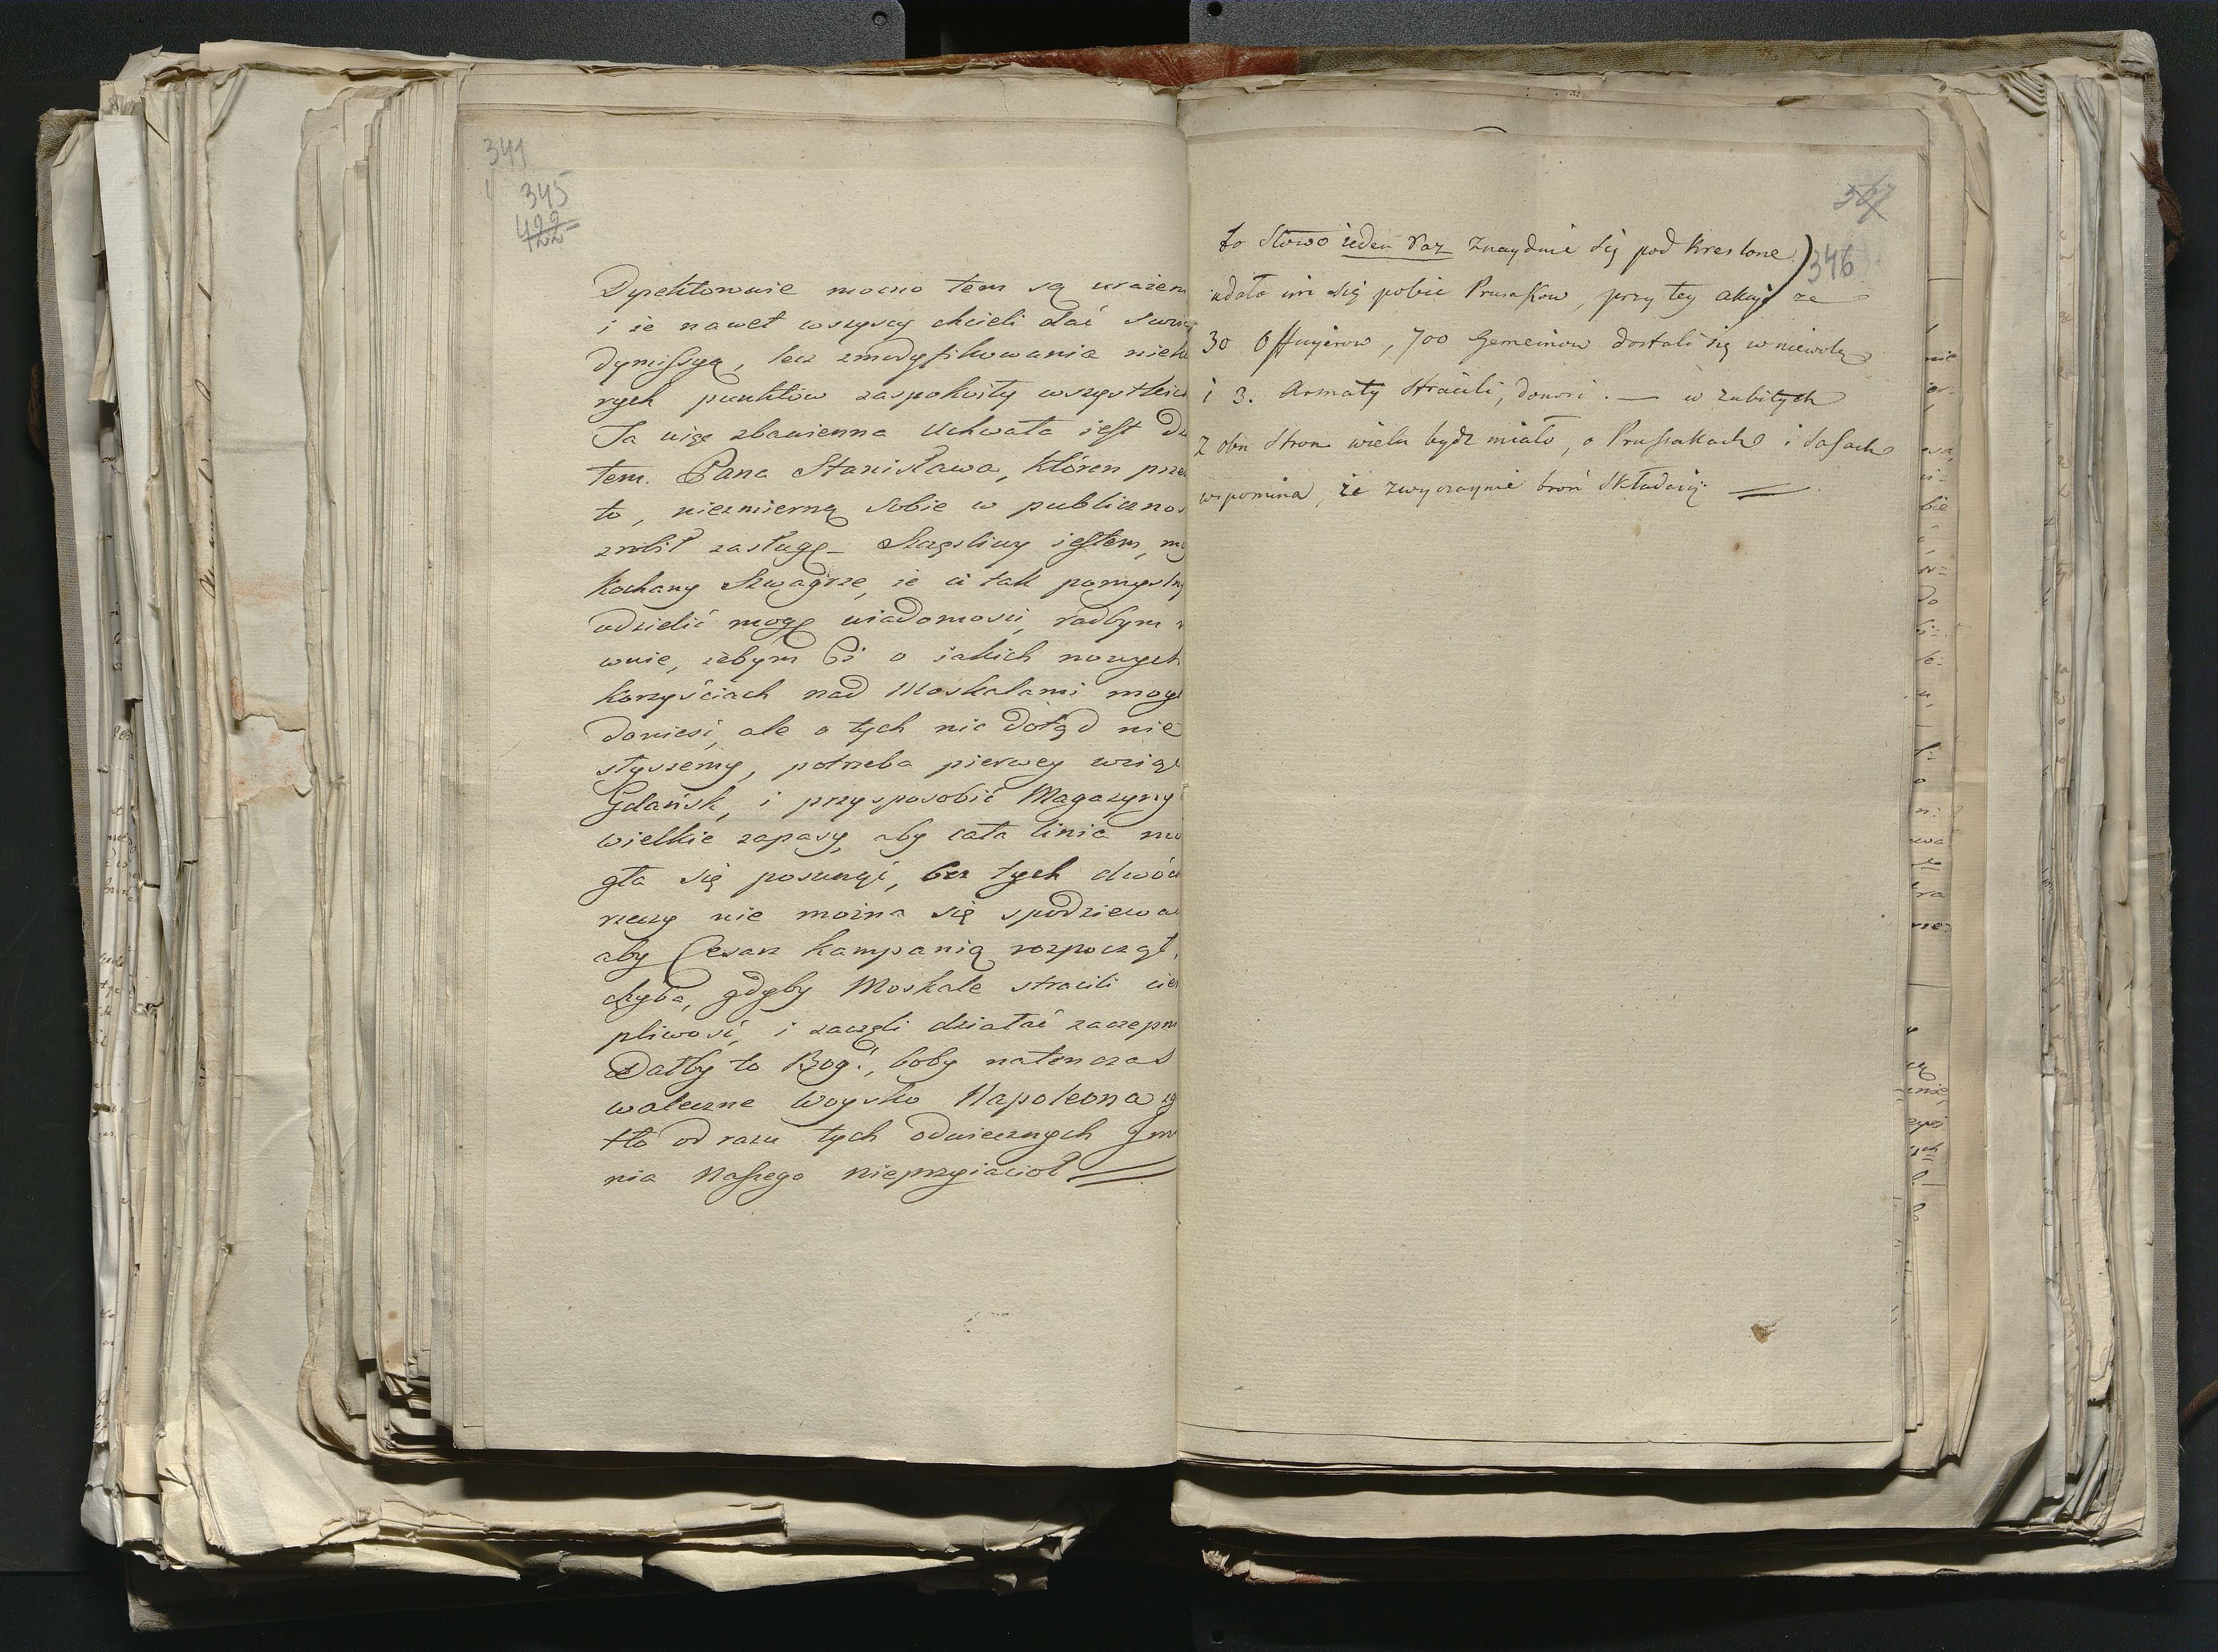 341
345
422
Dyrektorowie mocno tem są urażen
i że nawet wszyscy chcieli dać swoię
dymissyą, lecz zmodyfikowania niektó
rych punktów zaspokoiły wszystkich
Ta więc zbawienna Uchwała iest
tem. Pana Stanisława, któren prze
to, niezmierną sobie w publicznoś
zrobił zasługę – Szczęśliwy iestem, mó
kochany Szwagrze, że ci tak pomyślny
udzielić mogę wiadomości, radbym
wnie, żebym Ci o iakich nowych
korzyściach nad Moskalami mógł
donieść, ale o tych nic dotąd nie
słyszemy, potrzeba pierwey wziąć
Gdańsk, i przysposobić Magazyny
wielkie zapasy, aby cała linia mo
gła się posunąć, bez tych dwóch
rzeczy nie można się spodziewać
aby Cesarz kampanią rozpoczął,
chyba, gdyby Moskale stracili cier
pliwość, i zaczęli działać zaczepn
Dałby to Bog!, boby natenczas
waleczne Woysko Napoleona
tło od razu tych odwiecznych Jmie
nia Naszego nieprzyiaciół
567
346
to Słowo ieden raz znayduie się pod kreslone)
udało im się pobić Prusaków, przy tey akcyi ze
30 Officyierow, 700 Gemeinow dostali się w niewolą
i 3. Armaty stracili, donosi. — w zabitych
z obu stron wielu bydź miało, o Prusakach i Sasach
wspomina, że zwyczaynie broń składaią. —